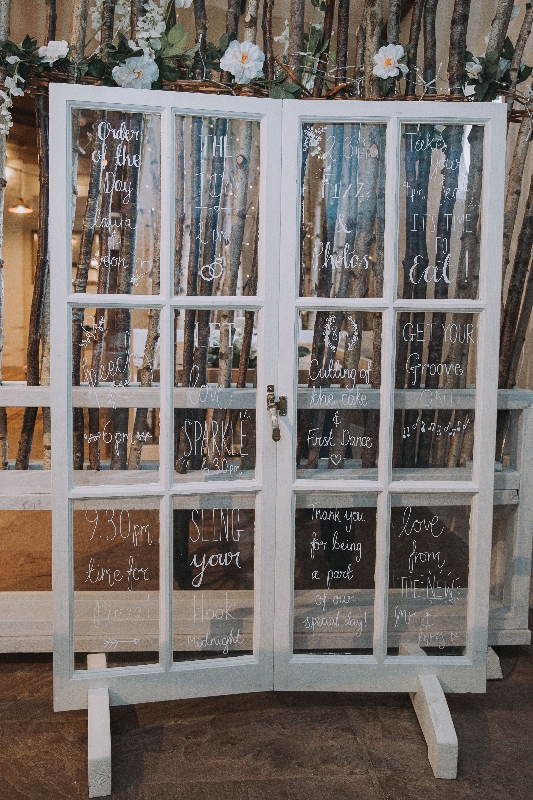 Order
of the
Day
Laura
&
THE
I DO's
2pm
2.30pm
Fizz
&
Photos
Take
your
4pm
IT'S TIME
TO
Eat!
Speeches
6pm
LET
love
SPARKLE
6.30pm
Cutting of
the cake
&
First Dance
GET YOUR
Groove
ON!
9.30pm
time for
SLING
your
Hook
Midnight
Thank you
for being
a part
of our
special day!
love
from
THE NEW
Mr &